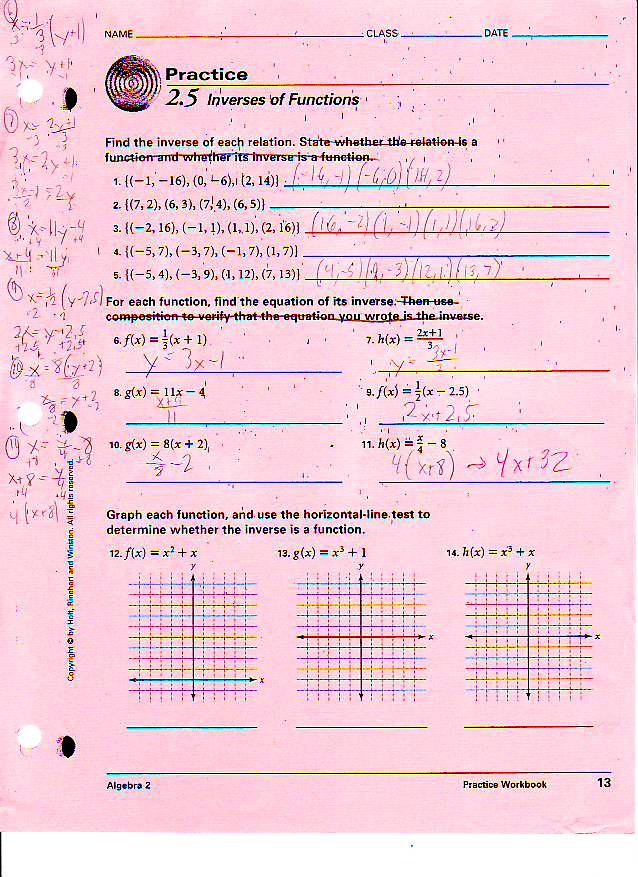 NAME CLASS DATE
Practice
2.5 Inverses of Functions
Find the inverse of each relation. State whether the relation is a
function and whether its inverse is a function.
1. {(−1, −16), (0, −6), (2, 14)} (-16, -1) (-6, 0) (14, 2)
2. {(7, 2), (6, 3), (7, 4), (6, 5)}
3. {(−2, 16), (−1, 1), (1, 1), (2, 16)} (16, -2) (1, -1) (1, 1) (16, 2)
4. {(−5, 7), (−3, 7), (−1, 7), (1, 7)}
5. {(−5, 4), (−3, 9), (1, 12), (7, 13)} (4, -5) (9, -3) (12, 1) (13, 7)
For each function, find the equation of its inverse. Then use
composition to verify that the equation you wrote is the inverse.
6. f(x) = 1/3(x + 1) 7. h(x) = 2x+1/3
y = 3x-1 y = 3x-1/2
8. g(x) = 11x − 4 9. f(x) = 1/2(x − 2.5)
x+4/11 2x+2.5
10. g(x) = 8(x + 2) 11. h(x) = x/4 − 8
x/8 -2 4(x+8) → 4x+32
Graph each function, and use the horizontal-line test to
determine whether the inverse is a function.
12. f(x) = x² + x 13. g(x) = x³ + 1 14. h(x) = x³ + x
y y y
x x x
Algebra 2 Practice Workbook 13
Copyright © by Holt, Rinehart and Winston. All rights reserved.
6 x = 1/3 (y+1)
3x = y+1
7 x = 2y+1/3
3x = 2y+1
3x-1 = 2y
8 x = 11y-4
x+4 = 11y
9 x = 1/2 (y-2.5)
2x = y-2.5
10 x = 8(y+2)
x/8 = y+2
11 x = y/4 - 8
x+8 = y/4
4(x+8)